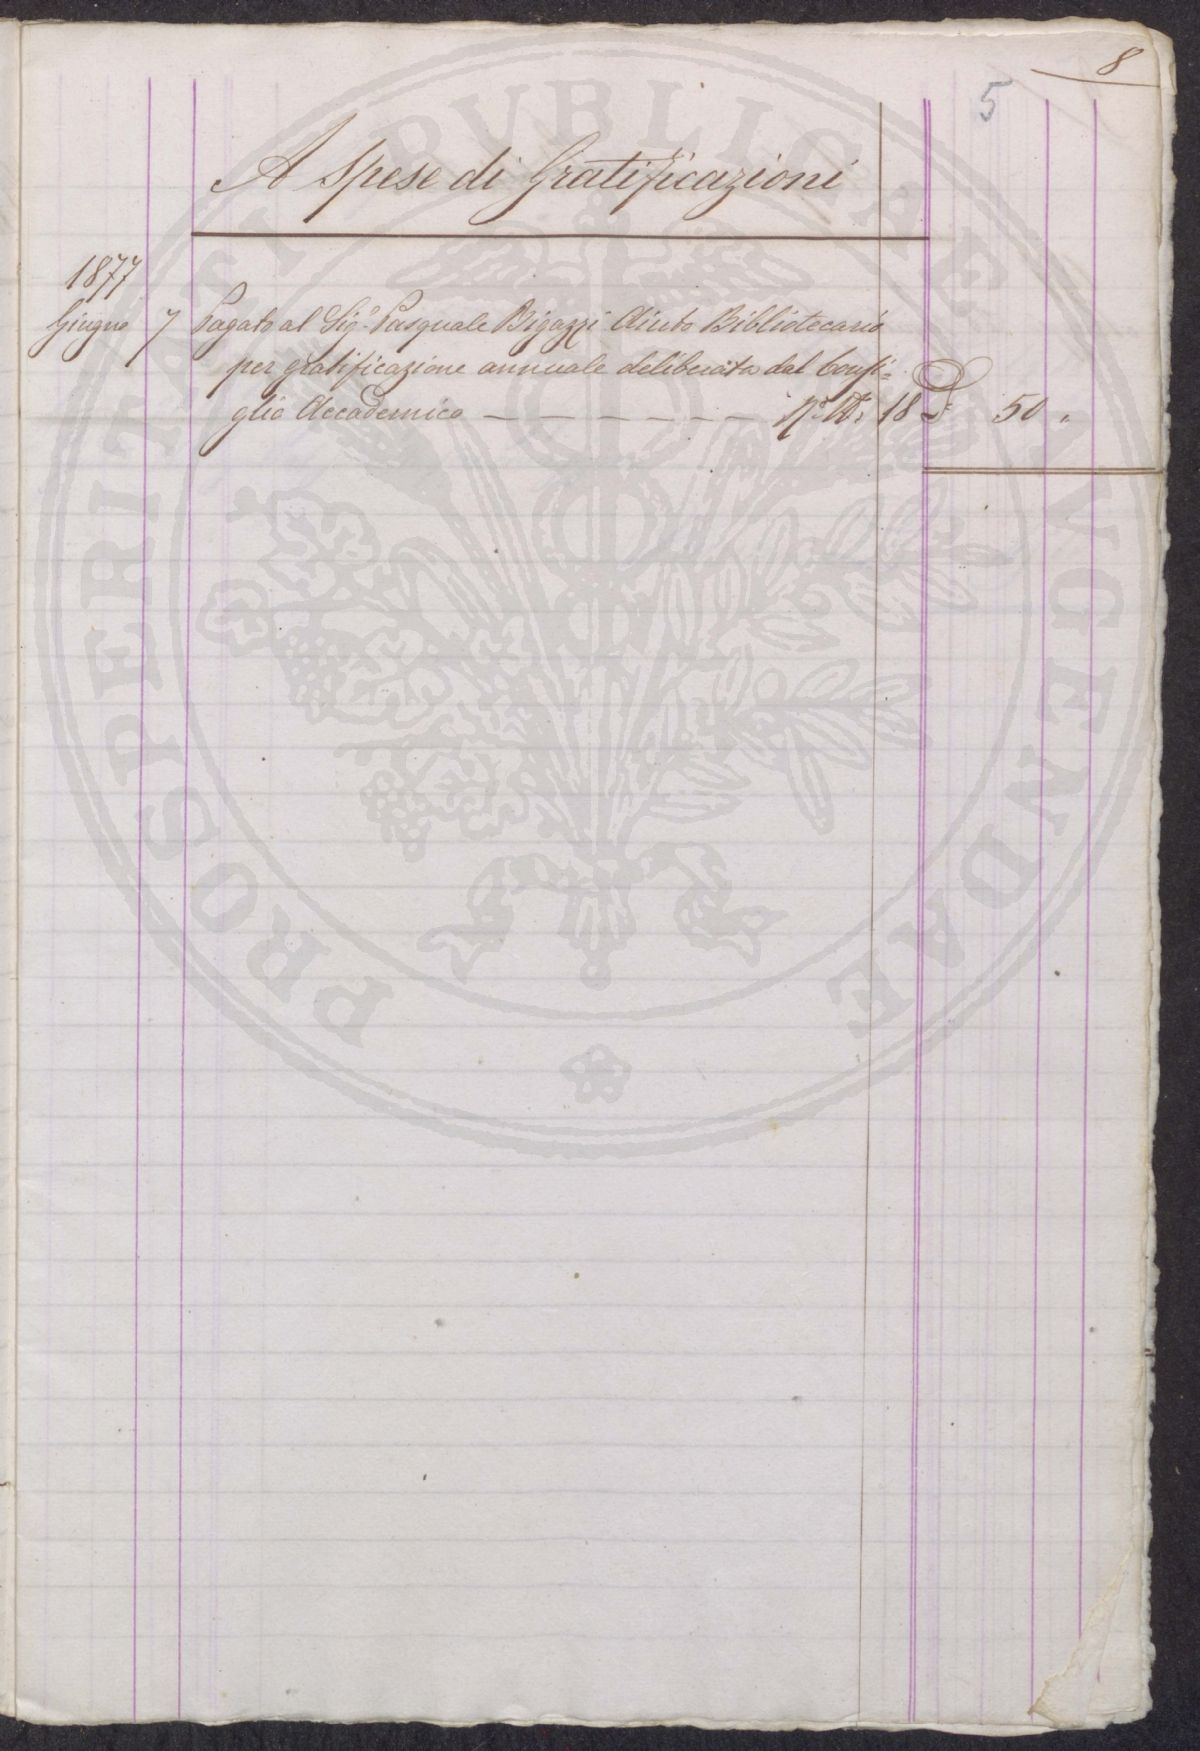 8
5
A Spese di Gratificazioni
1877
Giugno 7 Pagato al Sig.r Pasquale Bigazzi Aiuto Bibliotecario
per gratificazione annuale deliberata dal Consi=
glio Accademico — — — — — — — 18 £ 50 "
PROSPERITATI PVBLICAE AVGENDAE